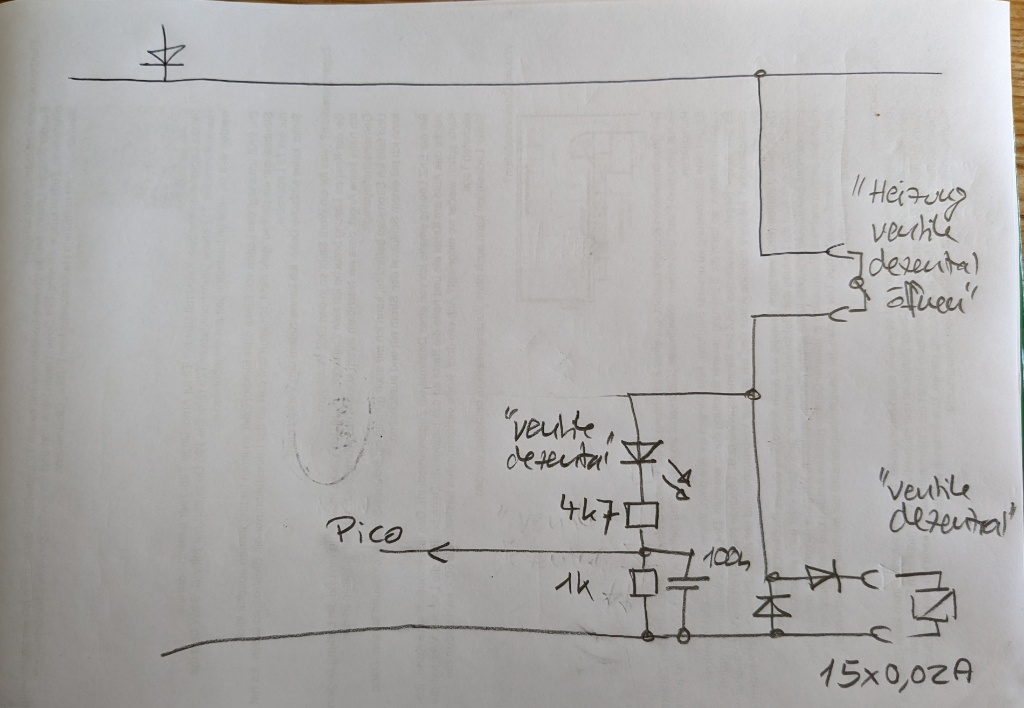 "Heizung
ventile
dezentral
öffnen"
"ventile
dezentral"
4k7
Pico
100n
1k
"ventile
dezentral"
15x0,02A